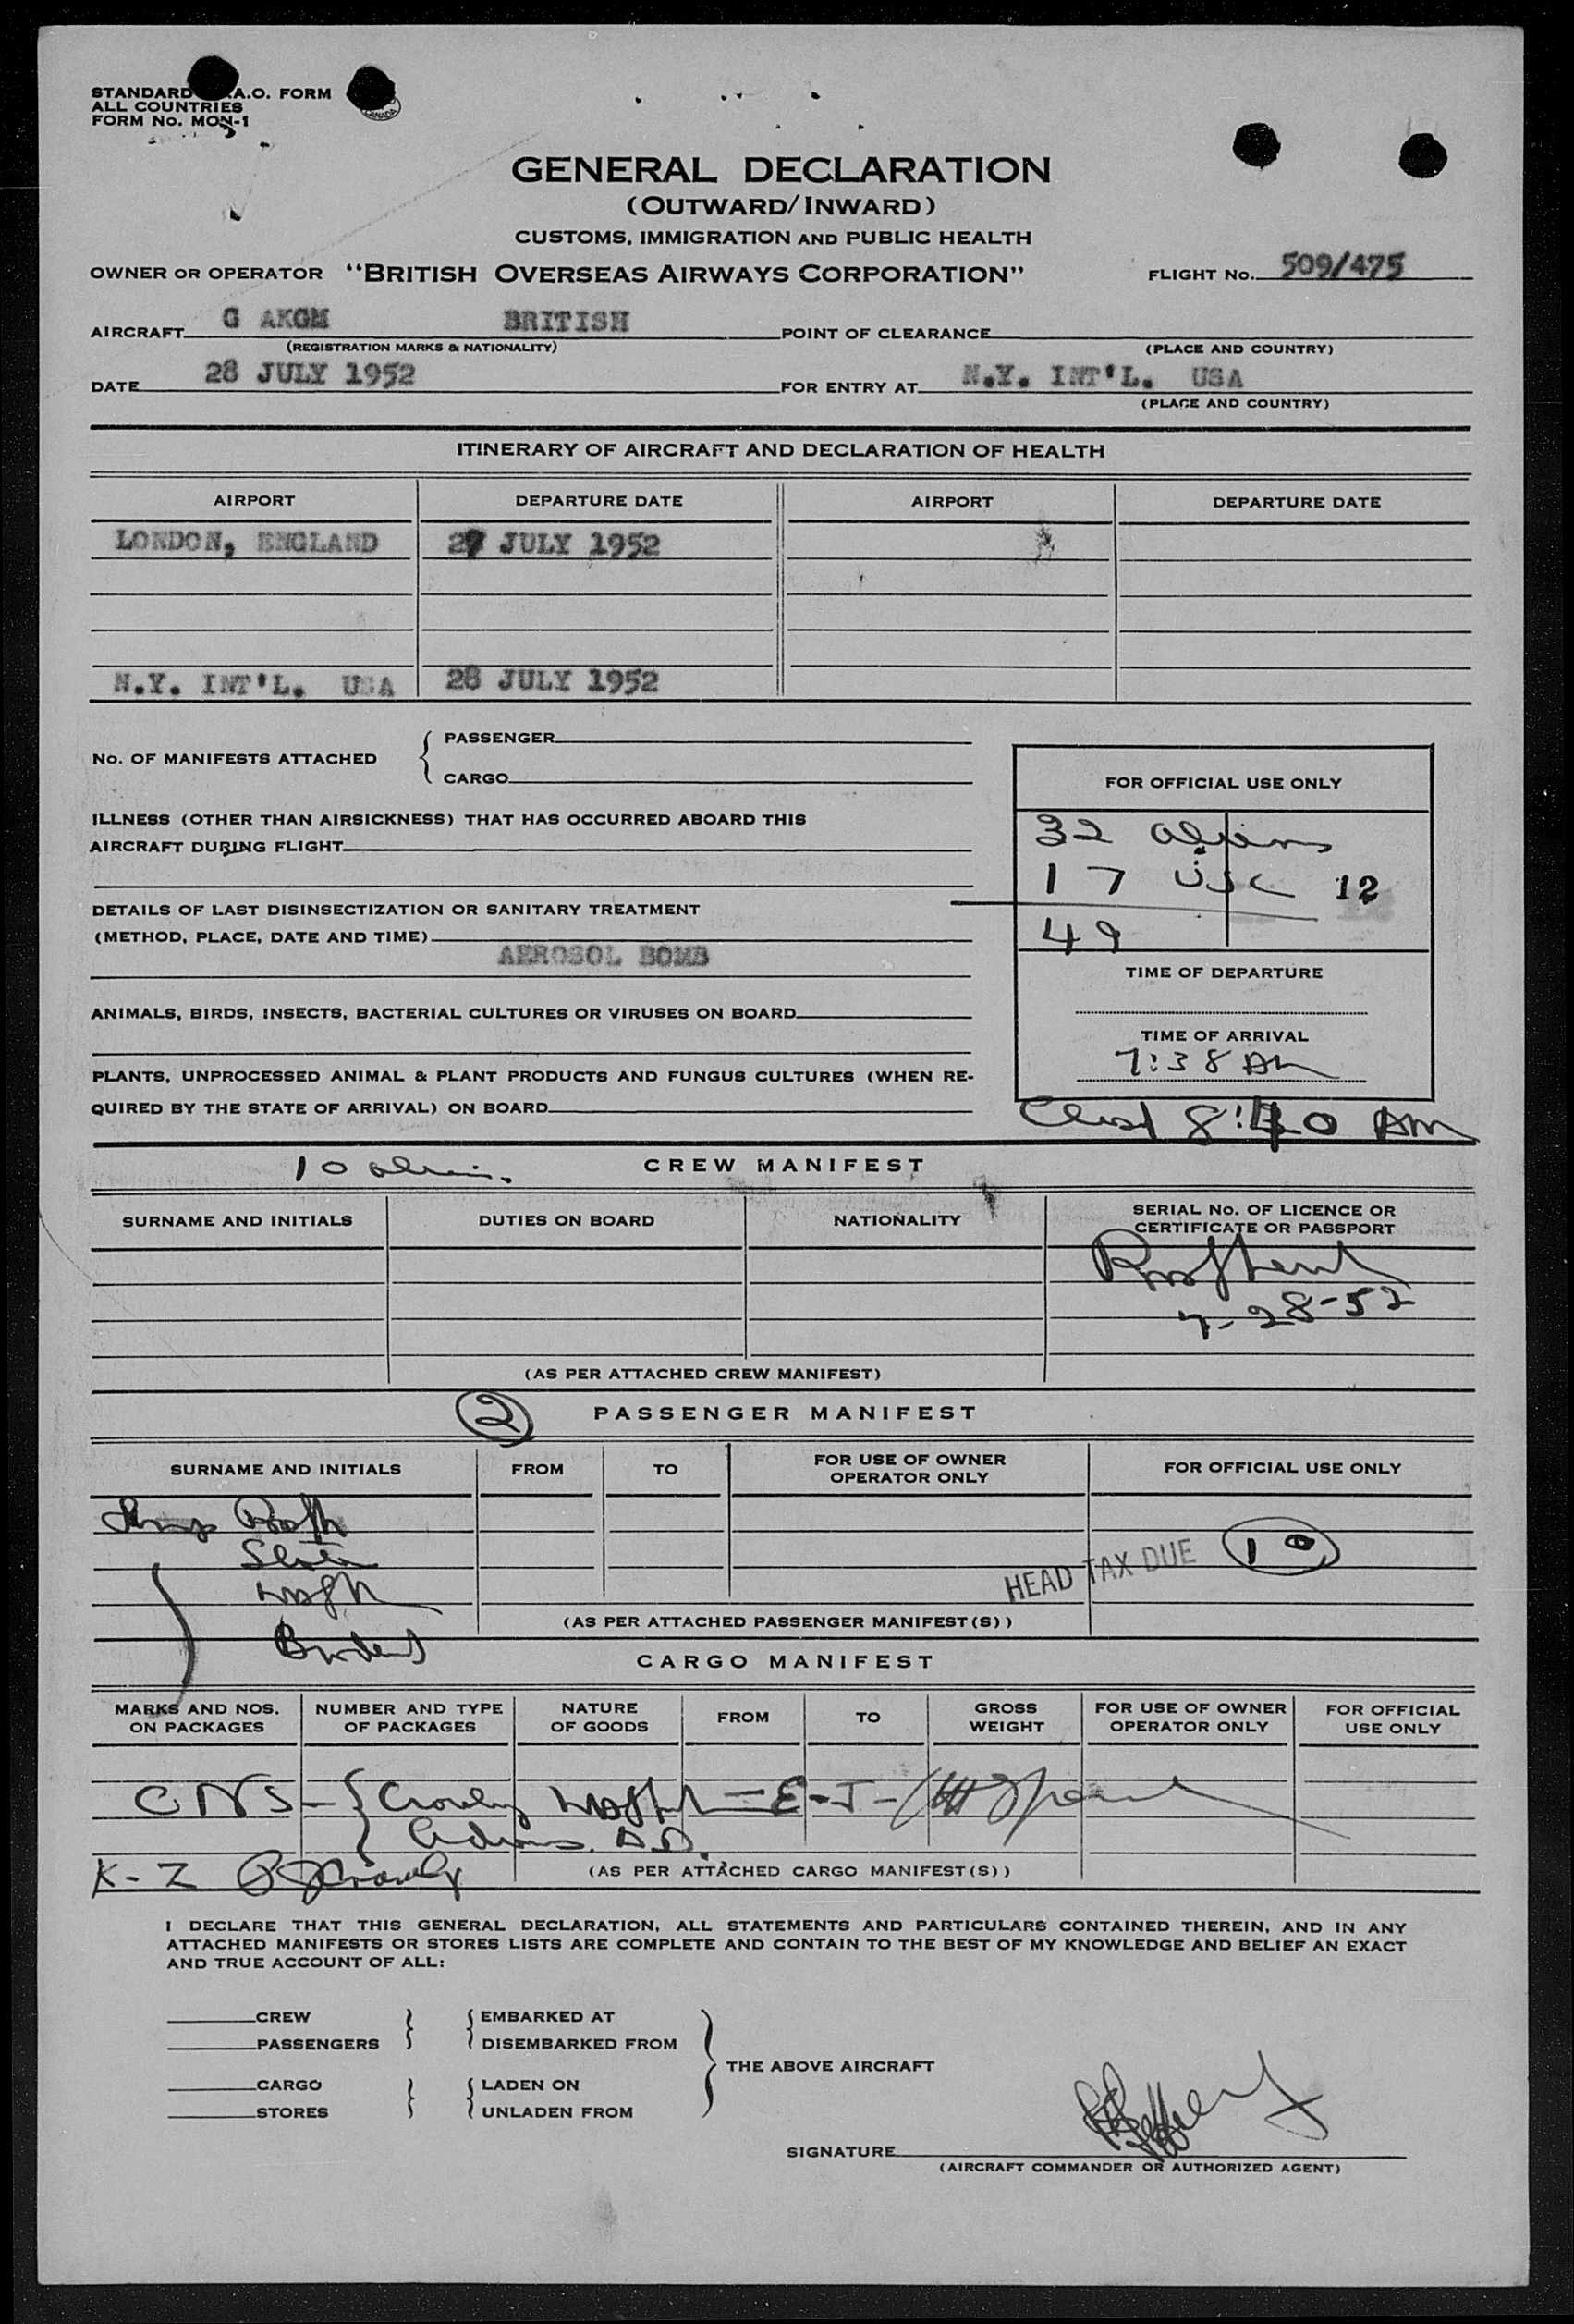 STANDARD .A.O. FORM
ALL COUNTRIES
FORM No. MON-1
CANADA
GENERAL DECLARATION
(OUTWARD/INWARD)
CUSTOMS, IMMIGRATION AND PUBLIC HEALTH
OWNER OR OPERATOR "BRITISH OVERSEAS AIRWAYS CORPORATION" FLIGHT No. 509/475
AIRCRAFT G AKGM BRITISH POINT OF CLEARANCE
(REGISTRATION MARKS & NATIONALITY) (PLACE AND COUNTRY)
DATE 28 JULY 1952 FOR ENTRY AT N.Y. INT'L. USA
(PLACE AND COUNTRY)
ITINERARY OF AIRCRAFT AND DECLARATION OF HEALTH
AIRPORT DEPARTURE DATE AIRPORT DEPARTURE DATE
LONDON, ENGLAND 27 JULY 1952
N.Y. INT'L. USA 28 JULY 1952
No. OF MANIFESTS ATTACHED
PASSENGER
CARGO
ILLNESS (OTHER THAN AIRSICKNESS) THAT HAS OCCURRED ABOARD THIS
AIRCRAFT DURING FLIGHT
DETAILS OF LAST DISINSECTIZATION OR SANITARY TREATMENT
(METHOD, PLACE, DATE AND TIME)
AEROSOL BOMB
ANIMALS, BIRDS, INSECTS, BACTERIAL CULTURES OR VIRUSES ON BOARD
PLANTS, UNPROCESSED ANIMAL & PLANT PRODUCTS AND FUNGUS CULTURES (WHEN RE-
QUIRED BY THE STATE OF ARRIVAL) ON BOARD
FOR OFFICIAL USE ONLY
32 aliens
17 USC 12
49
TIME OF DEPARTURE
TIME OF ARRIVAL
7:38 AM
8:40 AM
10 CREW MANIFEST
SURNAME AND INITIALS DUTIES ON BOARD NATIONALITY SERIAL No. OF LICENCE OR
CERTIFICATE OR PASSPORT
7-28-52
(AS PER ATTACHED CREW MANIFEST)
2 PASSENGER MANIFEST
SURNAME AND INITIALS FROM TO FOR USE OF OWNER
OPERATOR ONLY FOR OFFICIAL USE ONLY
HEAD TAX DUE 10
(AS PER ATTACHED PASSENGER MANIFEST(S))
CARGO MANIFEST
MARKS AND NOS.
ON PACKAGES NUMBER AND TYPE
OF PACKAGES NATURE
OF GOODS FROM TO GROSS
WEIGHT FOR USE OF OWNER
OPERATOR ONLY FOR OFFICIAL
USE ONLY
E-J-
K-Z
(AS PER ATTACHED CARGO MANIFEST(S))
I DECLARE THAT THIS GENERAL DECLARATION, ALL STATEMENTS AND PARTICULARS CONTAINED THEREIN, AND IN ANY
ATTACHED MANIFESTS OR STORES LISTS ARE COMPLETE AND CONTAIN TO THE BEST OF MY KNOWLEDGE AND BELIEF AN EXACT
AND TRUE ACCOUNT OF ALL:
CREW EMBARKED AT
PASSENGERS DISEMBARKED FROM
THE ABOVE AIRCRAFT
CARGO LADEN ON
STORES UNLADEN FROM
SIGNATURE
(AIRCRAFT COMMANDER OR AUTHORIZED AGENT)